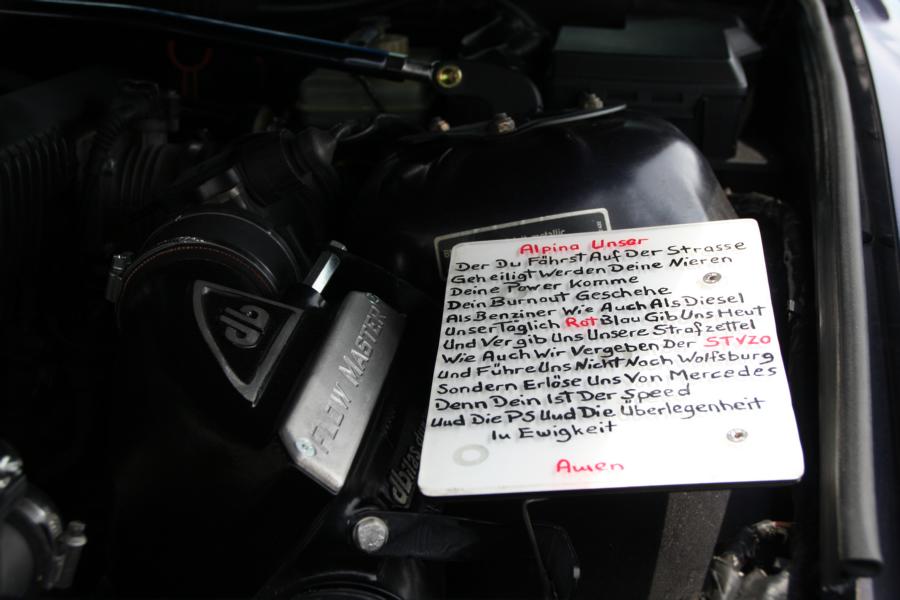 metallic
Alpina Unser
Der Du Fährst Auf Der Strasse
Geheiligt Werden Deine Nieren
Deine Power Komme
Dein Burnout Geschehe
Als Benziner Wie Auch Als Diesel
Unser Täglich Rot Blau Gib Uns Heut
Und Vergib Uns Unsere Strafzettel
Wie Auch Wir Vergeben Der STVZO
Und Führe Uns Nicht Nach Wolfsburg
Sondern Erlöse Uns Von Mercedes
Denn Dein Ist Der Speed
Und Die PS Und Die Überlegenheit
In Ewigkeit
Amen
db
FLOW MASTER